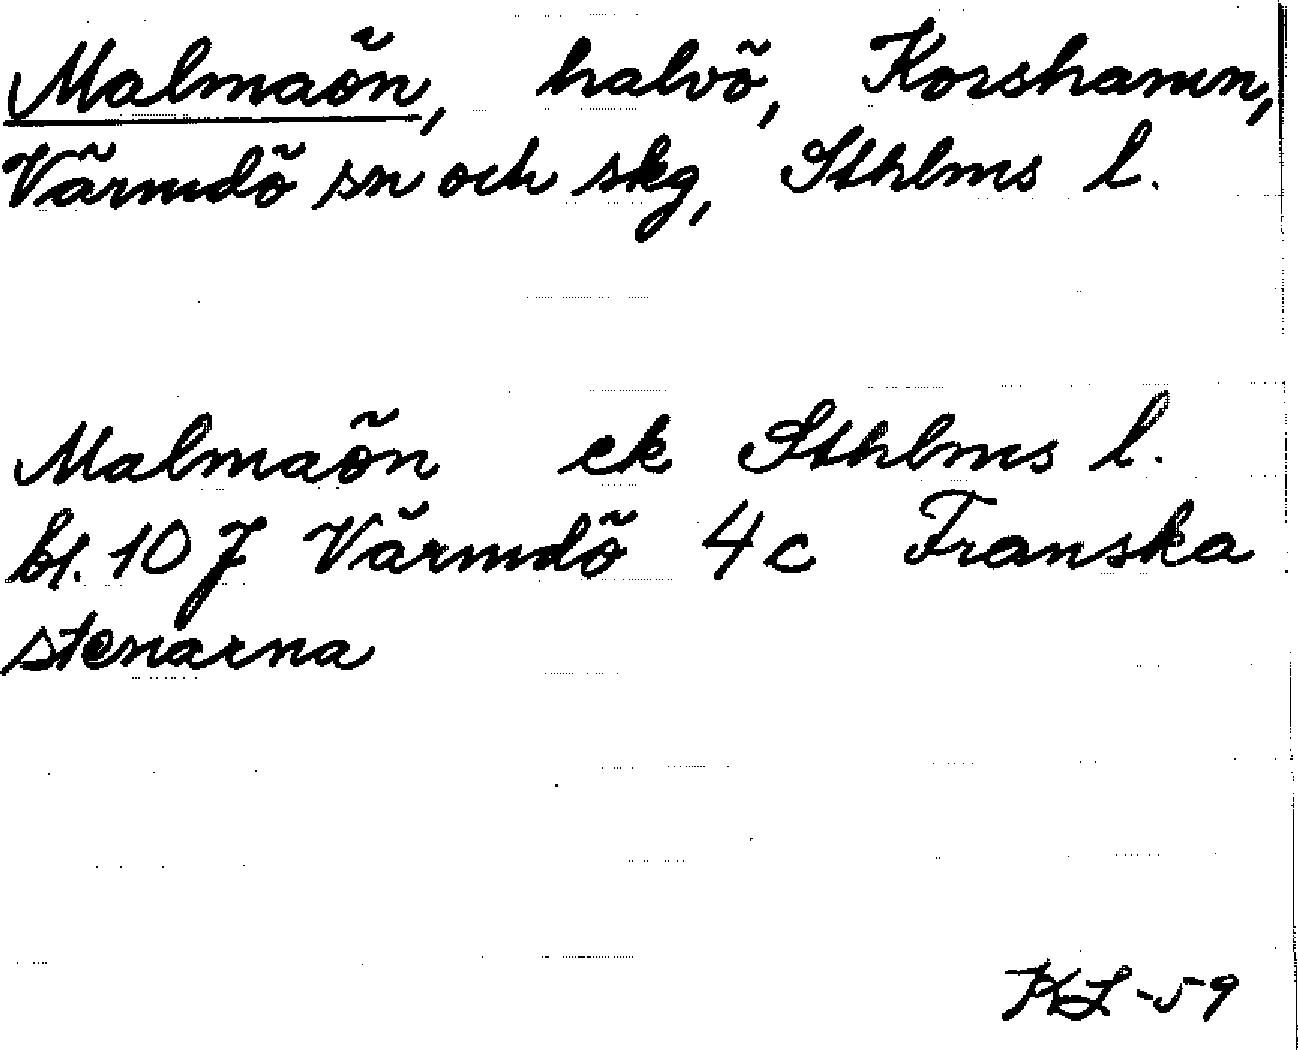 Malmaön, halvö, Korshamn,
Värmdö sn och skg, Sthlms l.
Malmaön ek Sthlms l.
bl. 10 J Värmdö 4c Franska
stenarna
KL-59